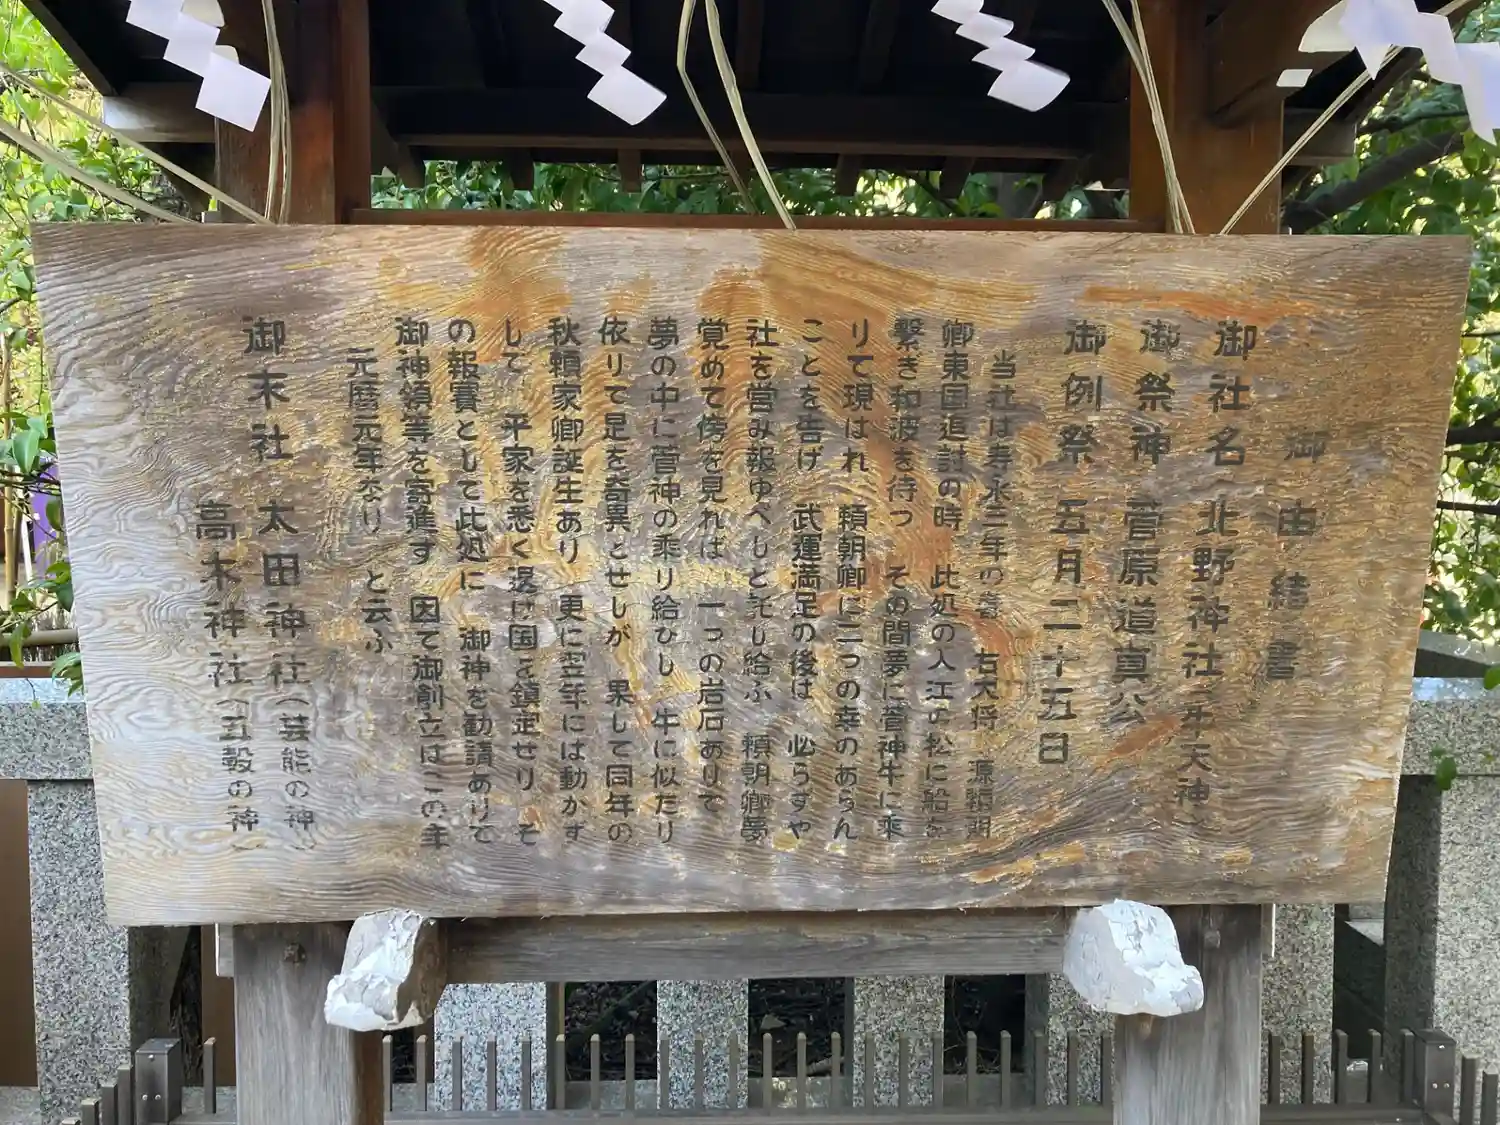 御由緒書
御社名 北野神社（牛天神）
御祭神 菅原道真公
御例祭 五月二十五日
当社は寿永三年の春 右大将 源頼朝
卿東国追討の時 此処の入江の松に船を
繋ぎ和波を待つ その間夢に菅神牛に乗
りて現はれ 頼朝卿に二つの幸のあらん
ことを告げ 武運満足の後は 必らずや
社を営み報ゆべしと託し給ふ 頼朝卿夢
覚めて傍を見れば 一つの岩石ありて
夢の中に菅神の乗り給ひし 牛に似たり
依りて是を奇異とせしが 果して同年の
秋頼家卿誕生あり 更に翌年には動かず
して 平家を悉く退け国を鎮定せり そ
の報賽として此処に 御神を勧請ありて
御神領等を寄進す 因て御創立はこの年
元暦元年なり と云ふ
御末社 太田神社（芸能の神）
高木神社（五穀の神）